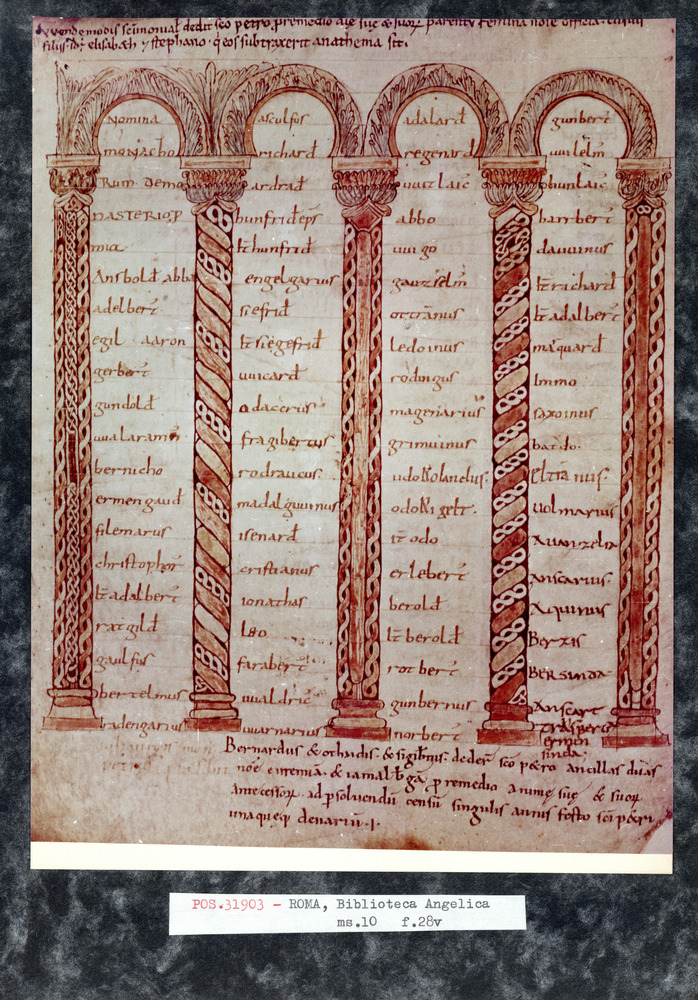 dedit sco petro p remedio aie suę & suoꝝ parentū femina noīe officia
filius elisabæh stephano q eos subtraxerit anathema sit.
Nomina
monacho
rum demo
nasterio p
mia
Ansbold abba
adelbert
egil aaron
gerbert
gundold
uualaramn
bernicho
ermengaud
filemarus
christophor
It adalbert
ratgild
gaulfus
bertelmus
hadengarius
asculfus
richard
ardrad
hunfrid eps
It hunfrid
engelgarius
siefrid
It siegefrid
uuicard
odacrius
fragibertus
rodraucus
madalguuinus
isenard
cristianus
ionathas
leo
farabert
uualdric
uuarnarius
adalard
regenard
uuitlaic
abbo
uuigo
gauzselm
ottranus
ledoinus
rodingus
magenarius
grimuinus
udo Rolandus
odo Rigebt
It odo
erlebert
berold
It berold
rotbert
gunbernus
norbert
gunbert
uuilelm
hunlaic
haribert
dauuinus
It richard
It adalbert
maquard
Immo
saxoinus
baldo
uolmarius
Auanzelin
Anscarius
Aquinus
Berzis
Bersinda
Anscart
Bernardus & othudis & sigibtus dedert sco pætro ancillas duas
noē p remedio animę suę & suoꝝ
Antecessoꝝ ad p soluendū censū singulis annis festo sci pætri
unaqueq denariū .I.
POS.31903 - ROMA, Biblioteca Angelica
ms.10 f.28v